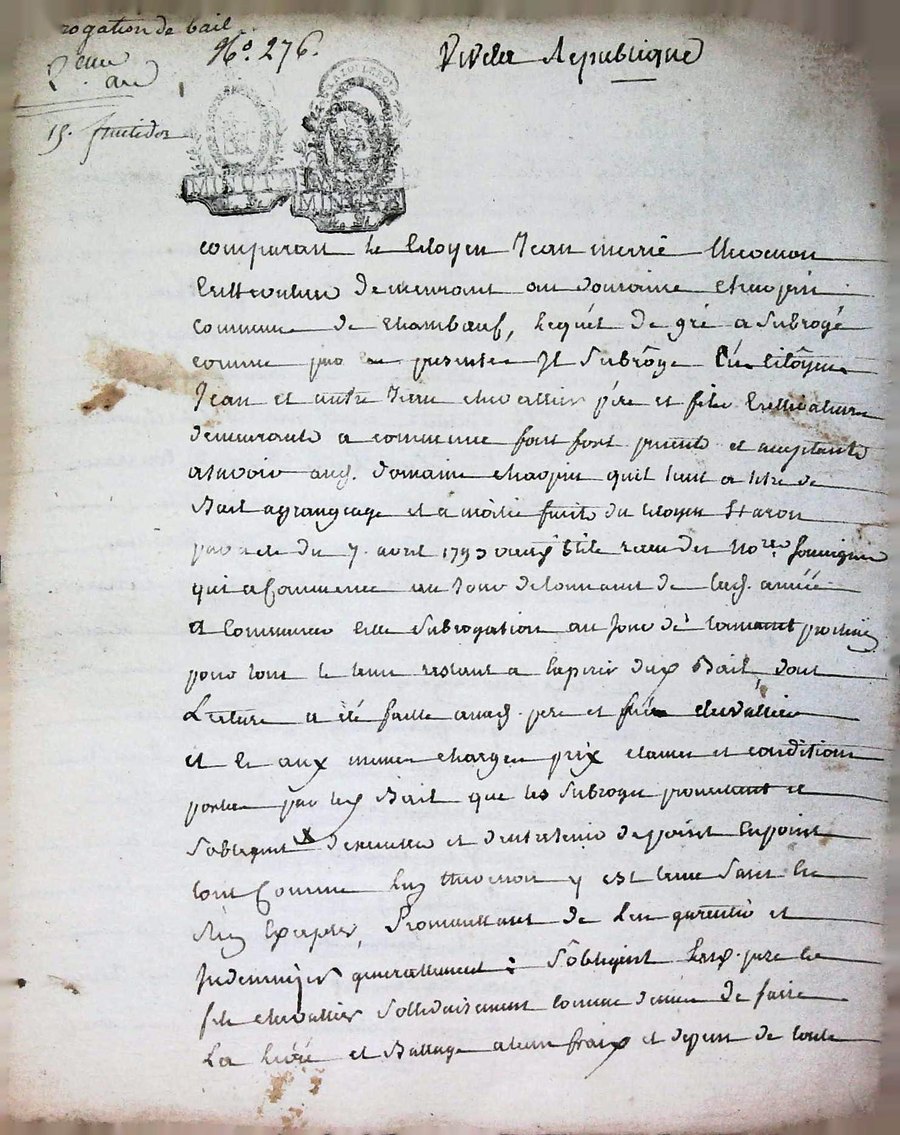 rogation de bail
2eme
an
N.o 276.
Vive la Republique
15. fruitidor
MINUTE
MINUTE
comparan le Citoyen Jean marie thevenon
Cultivateur demeurant au domaine Chavpin
commune de Chambœuf, lequel de gré a Subrogé
comme par les presentes Il Subroge les Citoyens
Jean et autre Jean chevallier pére et fils Cultivateurs
demeurants a commune font fort presents et acceptants
assavoir aud. domaine chavpin quil tient a titre de
Bail agrangeage et a moitié fruits du Citoyen
par acte du 7. avril 1793 No.re
qui a Commencé au Jour de lad. année
a Commencer cette Subrogation au Jour de prochain
pour tout le tems restant a Expirer dud. Bail, dont
Lecture a été faitte auxd. pere et fils chevallier
et ce aux memes charges prix clauses et conditions
portees par led. Bail que les Subrogés promettent et
Sobligent X dexecuter et dentretenir de point en point
tout Comme led. thevenon y est tenu Sans en
rien Excepter, Promettant de les garentir et
Indemniser generallement : Sobligent lesd. pere et
fils chevallier Sollidairement comme dessus de faire
La levée et Battage a leurs fraix et depens de toute